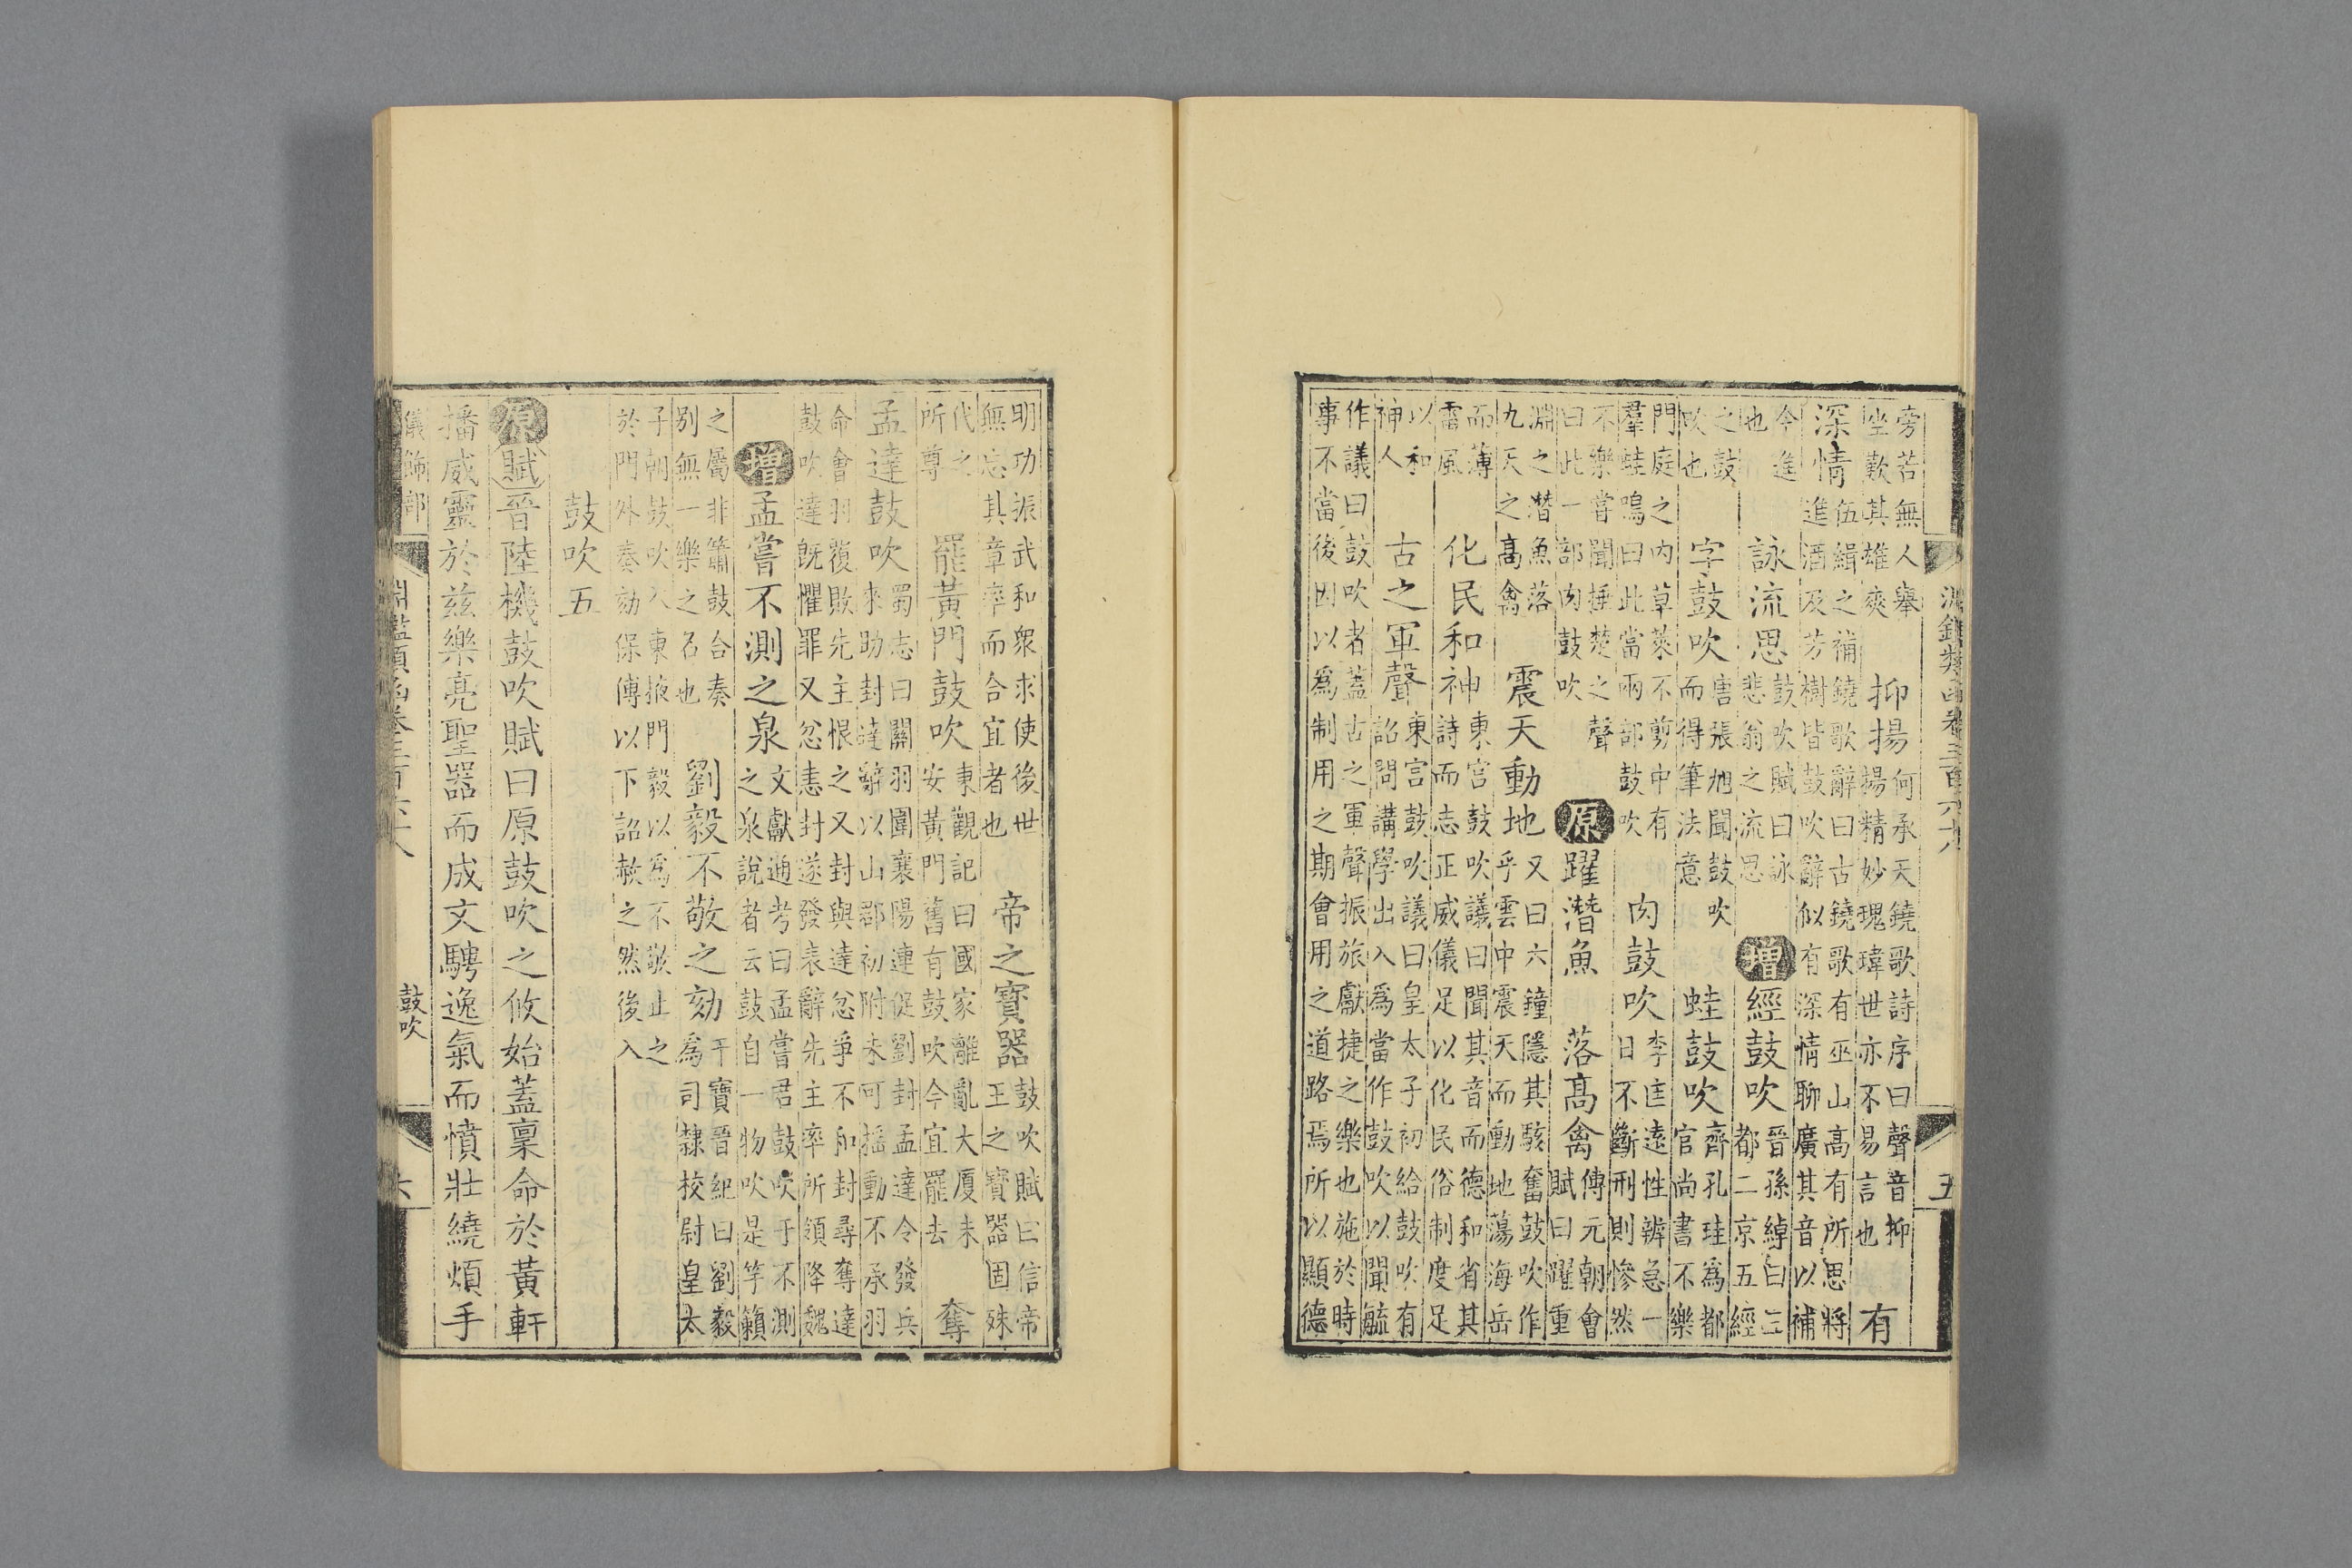 淵鑑類函卷三百六十八 五
旁若無人舉坐歎其雄爽 抑揚 何承天鐃歌詩序曰聲音抑揚揚精妙瑰瑋世亦不易言也 有
深情 伍緝之補鐃歌辭曰古鐃歌有巫山高有所思將進酒及芳樹皆鼓吹辭似有深情聊廣其音以補
今進也 詠流思 鼓吹賦曰詠悲翁之流思 增 經鼓吹 晉孫綽曰三都二京五經
之鼓吹也 字鼓吹 唐張旭聞鼓吹而得筆法意 蛙鼓吹 齊孔珪爲都官尚書不樂
門庭之内草萊不剪中有羣蛙嗚曰此當兩部鼓吹 肉鼓吹 李匡遠性辨急一日不斷刑則慘然
不樂嘗聞捶楚之聲曰此一部肉鼓吹 原 躍潛魚 落高禽 傅元朝會賦曰躍重
淵之潛魚落九天之高禽 震天動地 又曰六鐘隱其駭奮鼓吹作乎雲中震天而動地蕩海岳
而薄雷風 化民和神 東宫鼓吹議曰聞其音而德和省其詩而志正威儀足以化民俗制度足
以和神人 古之軍聲 東宫鼓吹議曰皇太子初給鼓吹有詔問講學出入爲當作鼓吹以聞毓
作議曰鼓吹者蓋古之軍聲振旅獻捷之樂也施於時事不當後因以爲制用之期會用之道路焉所以顯德
明功振武和衆求使後世無忘其章率而合宜者也 帝之寶器 鼓吹賦曰信帝王之寶器固殊
代之所尊 罷黄門鼓吹 東觀記曰國家離亂大厦未安黄門舊有鼓吹今宜罷去 奪
孟達鼓吹 蜀志曰關羽圍襄陽連促劉封孟達令發兵來助封達辭以山郡初附未可摇動不承羽
命會羽覆敗先主恨之又封與達忿爭不和封尋奪達鼓吹達既懼罪又忿恚封遂發表辭先主率所領降魏
增 孟嘗不測之泉 文獻通考曰孟嘗君鼓吹于不測之泉說者云鼓自一物吹是竽籟
之屬非簫鼓合奏别無一樂之名也 劉毅不敬之劾 干寶晉紀曰劉毅爲司隸校尉皇太
子朝鼓吹入東掖門毅以爲不敬止之於門外奏劾保傅以下詔赦之然後入
鼓吹五
原 賦 晉陸機鼓吹賦曰原鼓吹之攸始蓋稟命於黄軒
播威靈於兹樂亮聖器而成文騁逸氣而憤壯繞煩手
儀飾部 淵鑑類函卷三百六十八 鼓吹 六